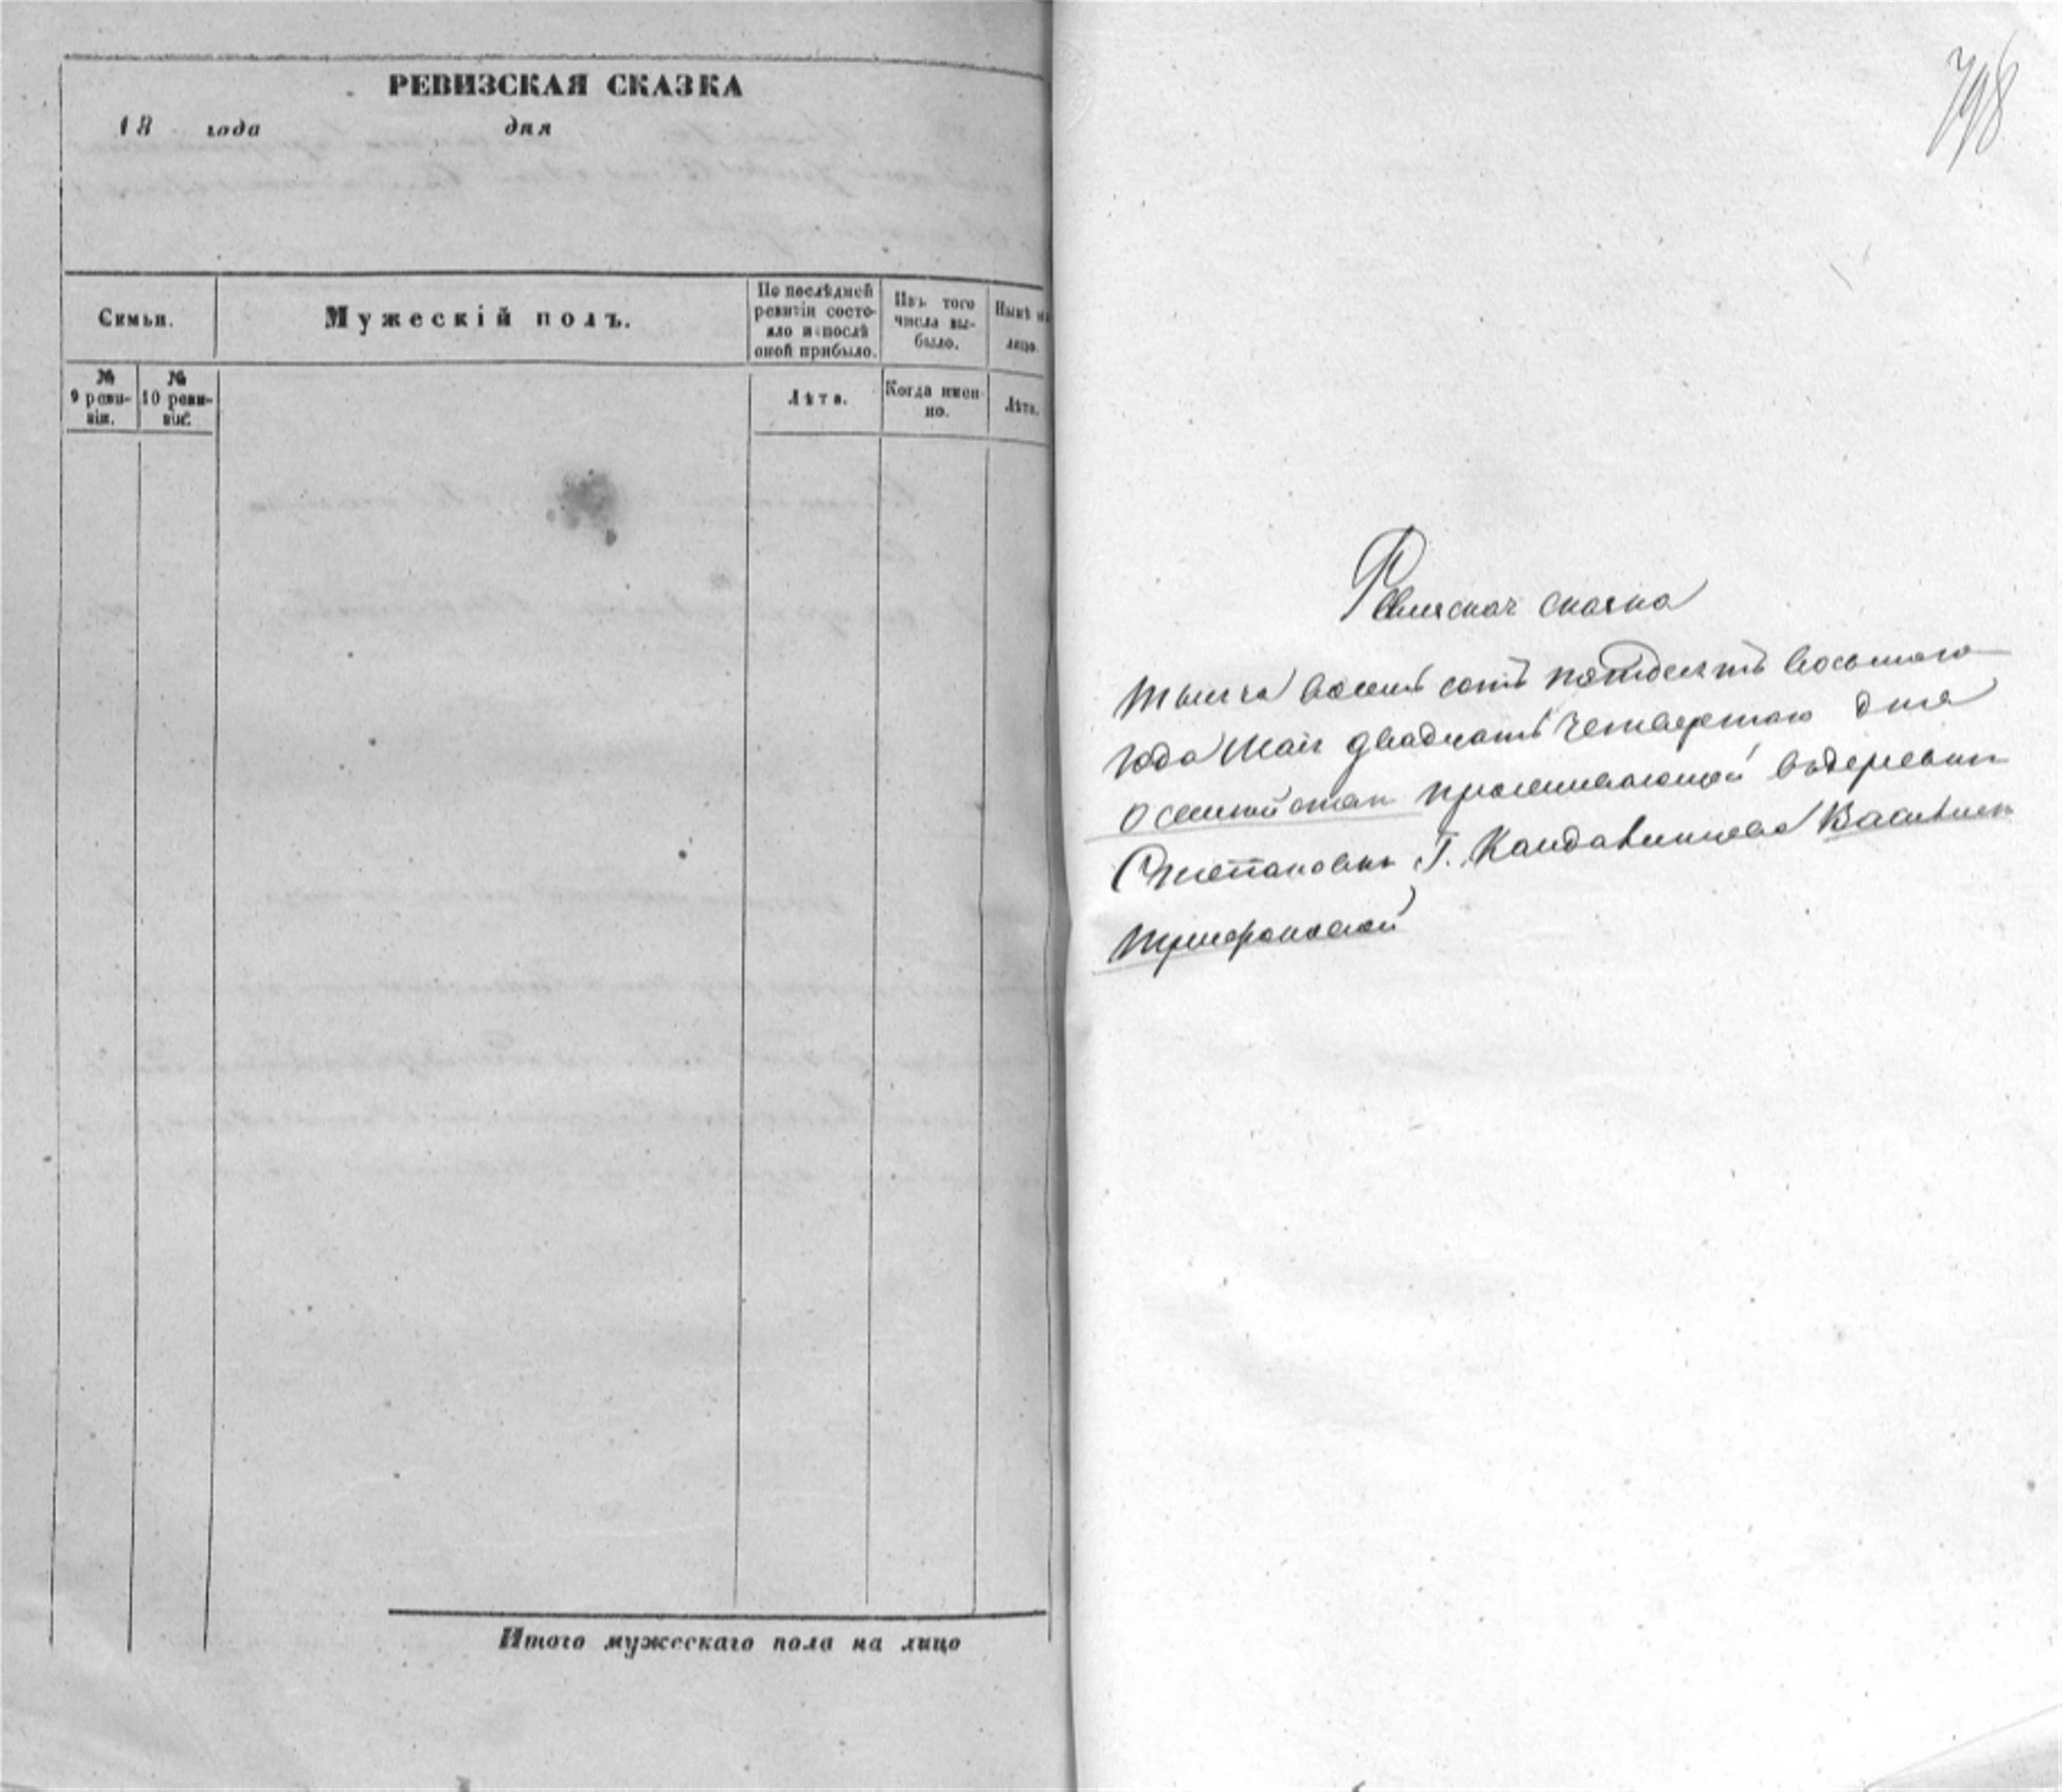 РЕВИЗСКАЯ СКАЗКА
18 года дня
Семьи.
Мужескій полъ.
По послѣдней ревизіи состояло и послѣ оной прибыло.
Изъ того числа выбыло.
Нынѣ на лицо.
№ 9 ревизіи.
№ 10 ревизіи.
Лѣта.
Когда именно.
Лѣта.
Итого мужескаго пола на лицо
798
Ревизская сказка
тысяча восемь сотъ пятдесятъ восьмаго
года Мая двадцать четвертаго дня
о проживающей въ деревни
Степановки Г.